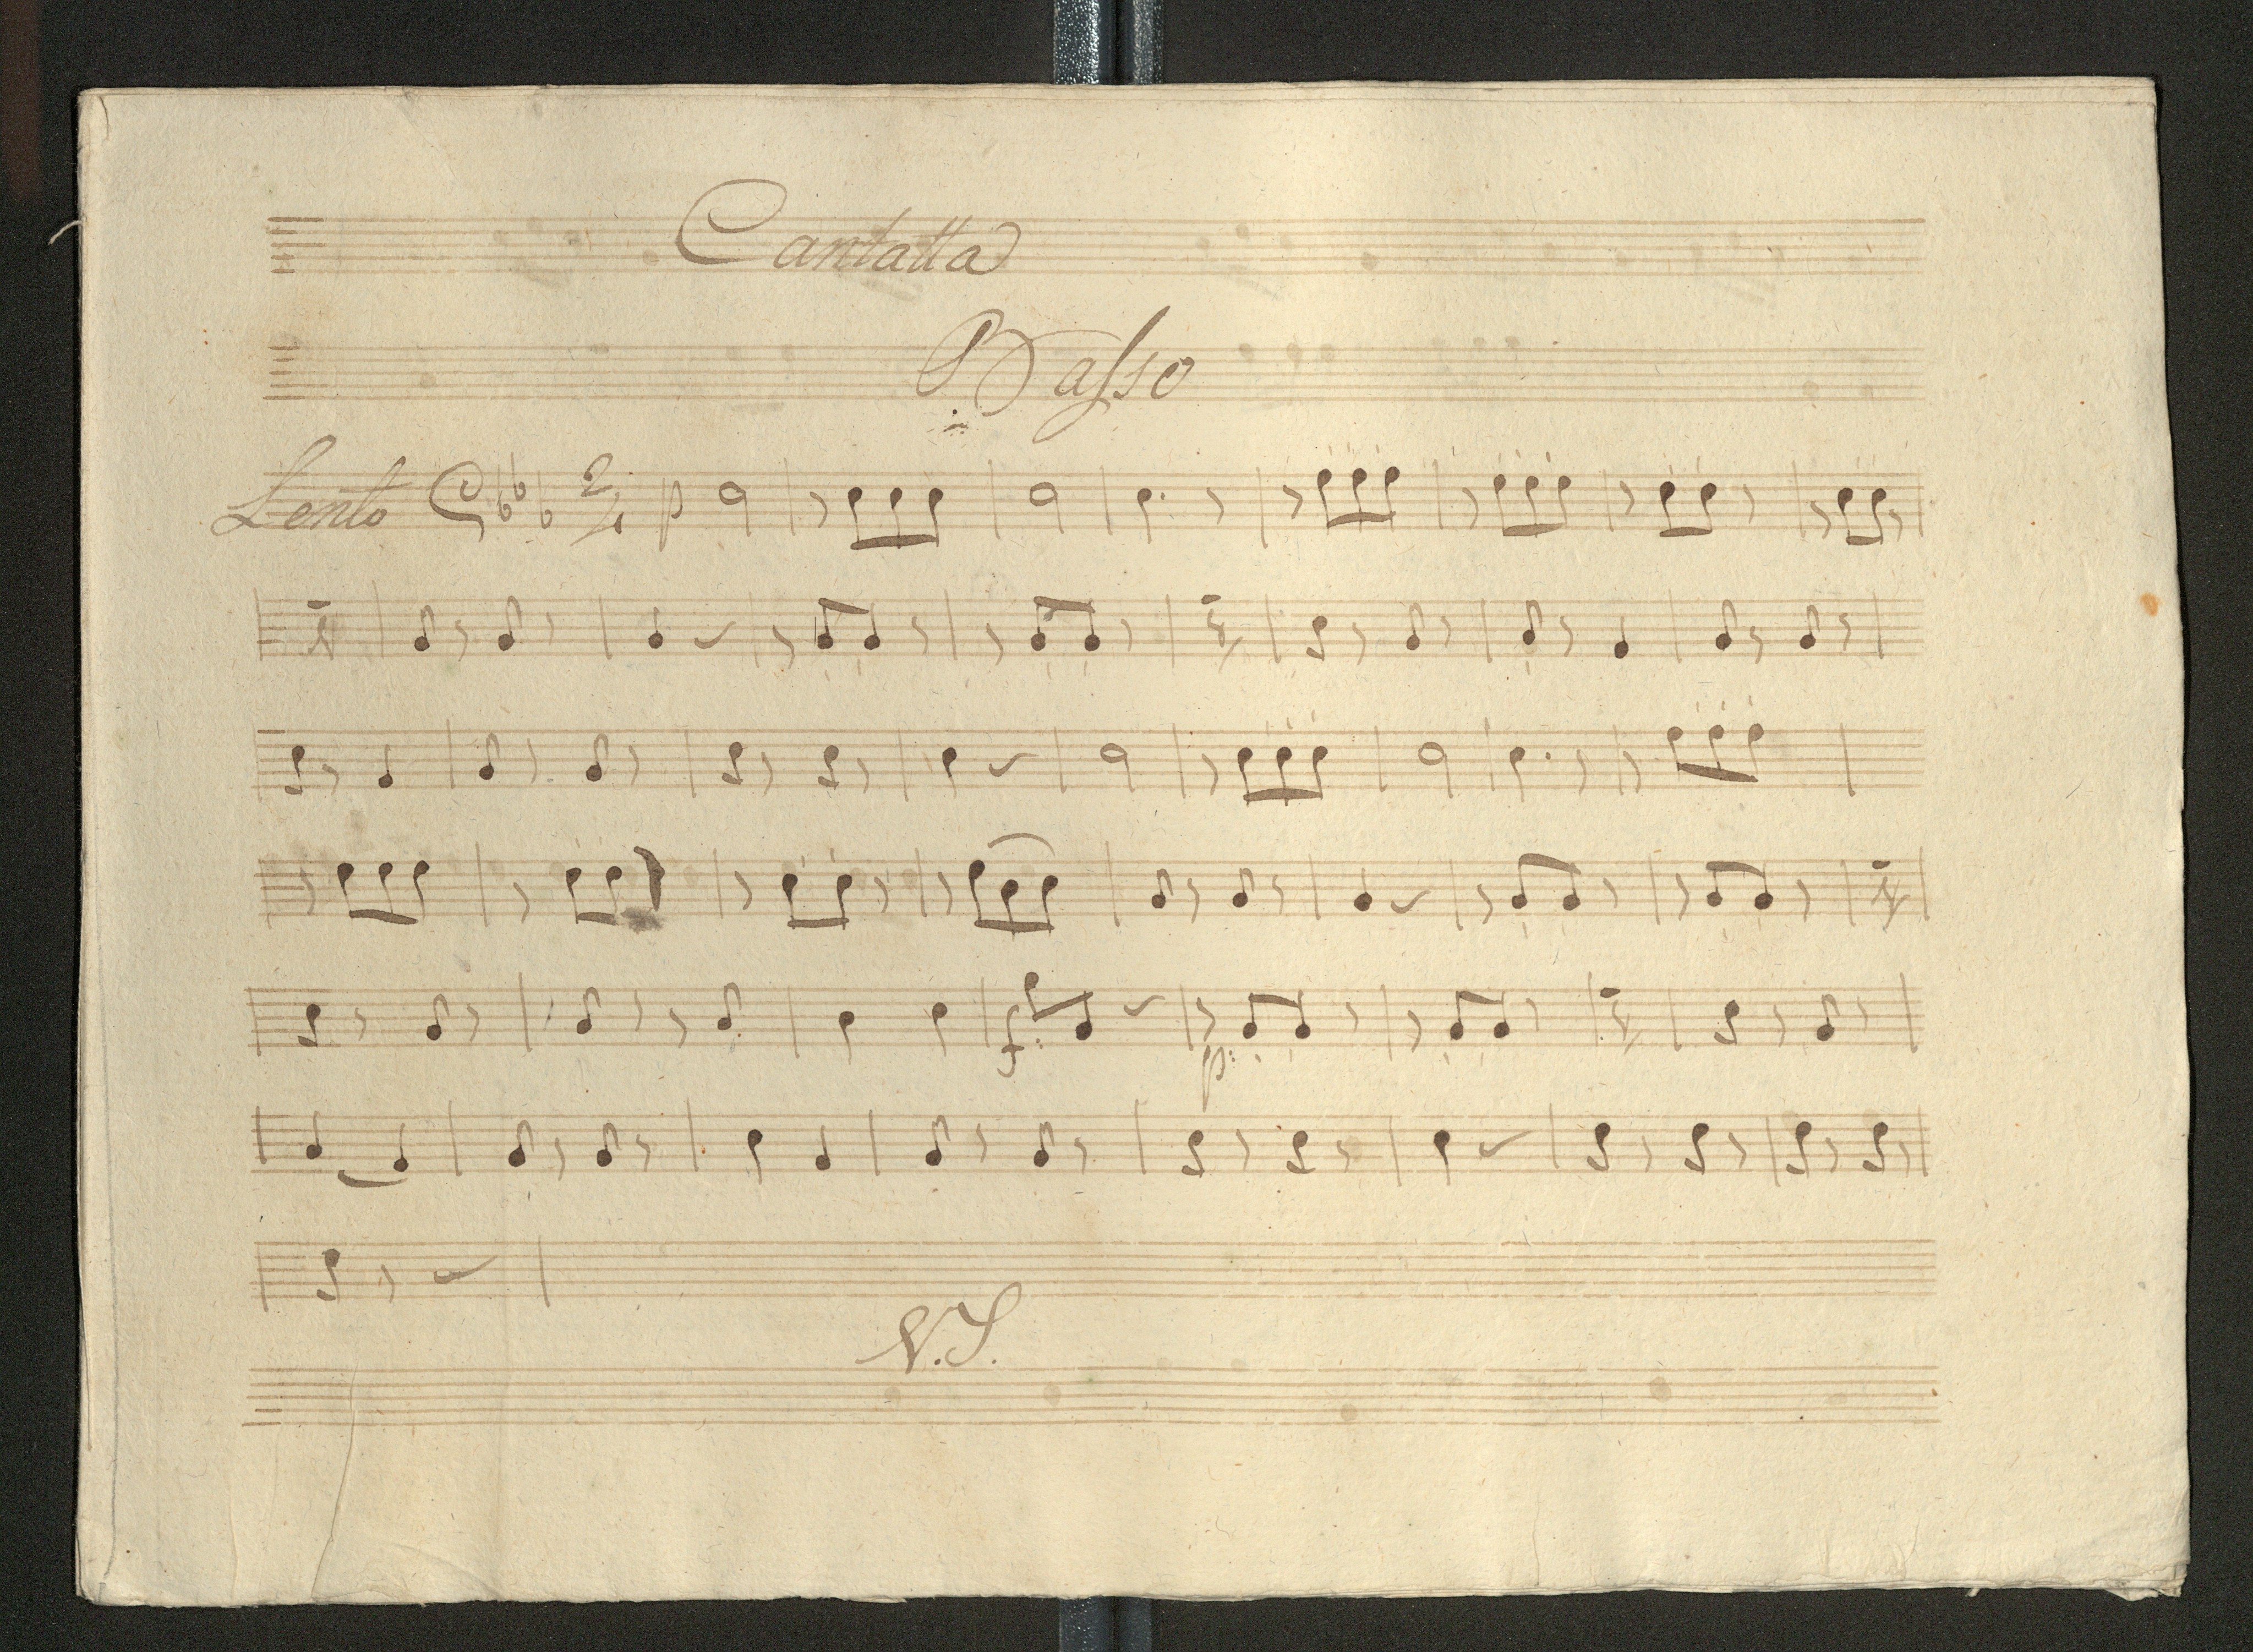 Cantatta
Baſso
Lento 2/4 p
f:
p:
V.S.